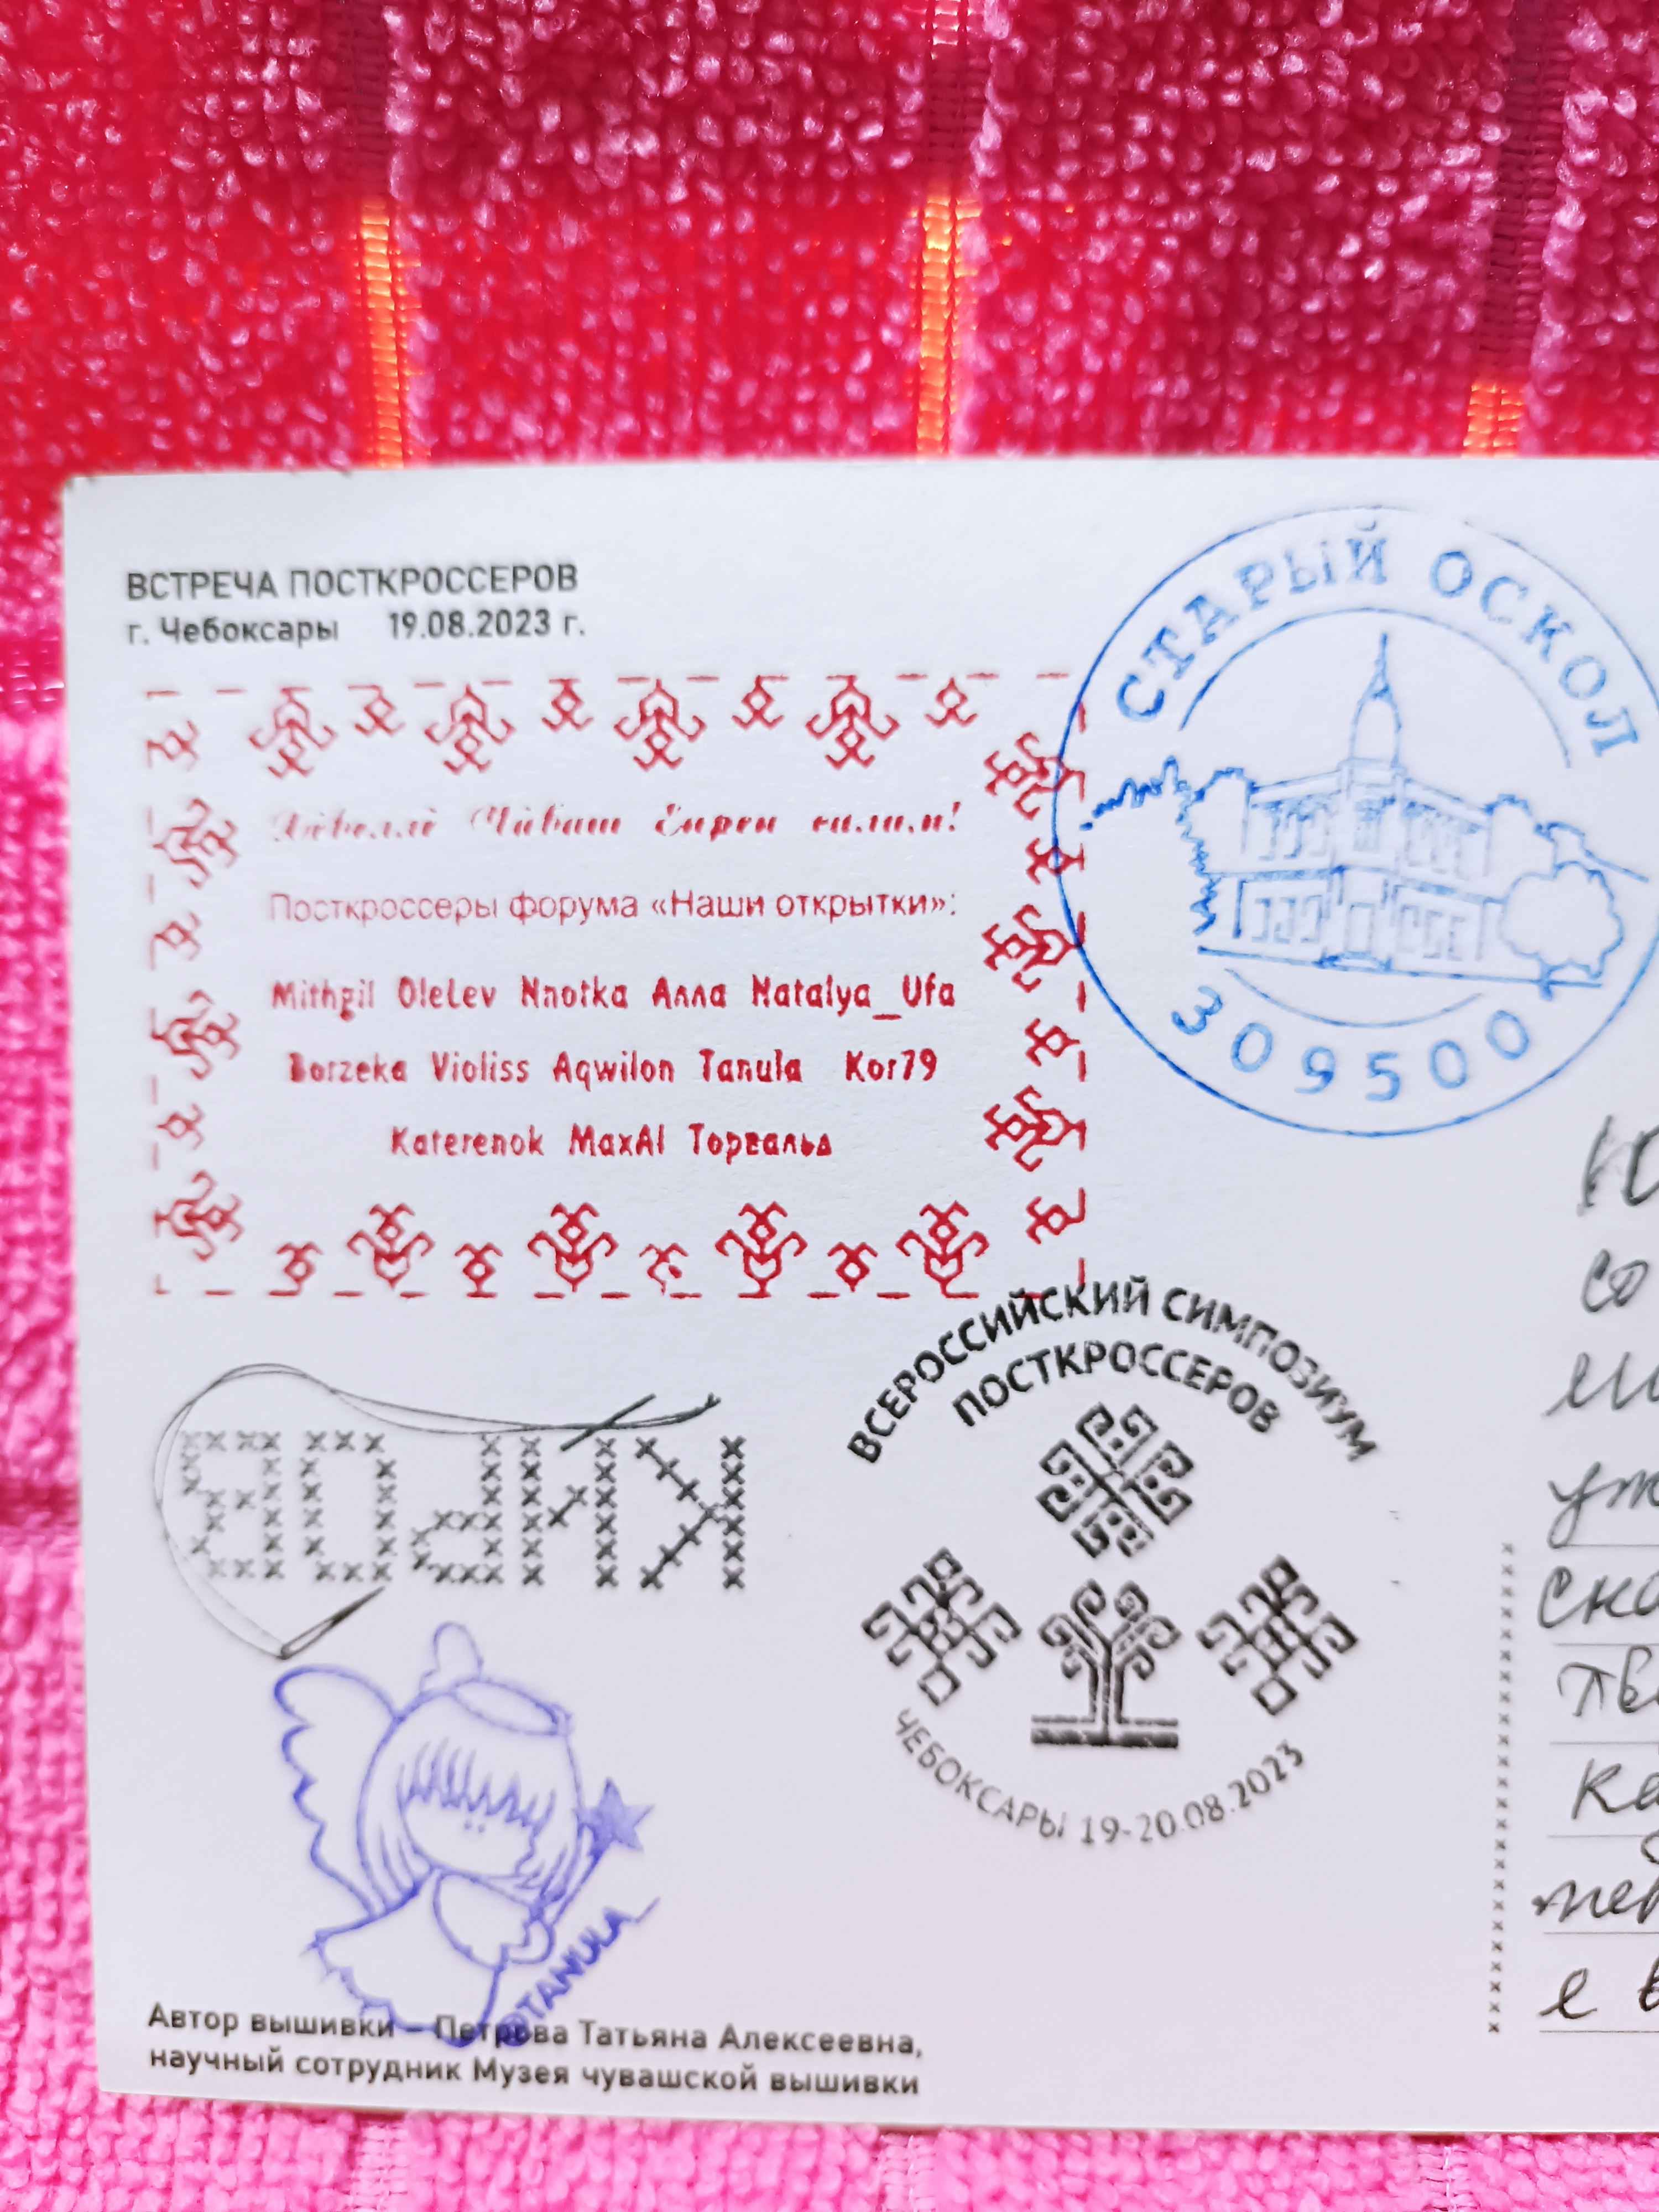 ВСТРЕЧА ПОСТКРОССЕРОВ
г. Чебоксары 19.08.2023 г.
СТАРЫЙ ОСКОЛ
309500
Чӑваш Енрен салам!
Посткроссеры форума «Наши открытки»:
Mithgil OleLev Nnotka Алла Natalya_Ufa
Borzeka Violiss Aqwilon Tanula Kor79
Katerenok MaxAl Торвальд
ВСЕРОССИЙСКИЙ СИМПОЗИУМ
ПОСТКРОССЕРОВ
ЧЕБОКСАРЫ 19-20.08.2023
КИРОВ
©TANULA
Автор вышивки – Петрова Татьяна Алексеевна,
научный сотрудник Музея чувашской вышивки